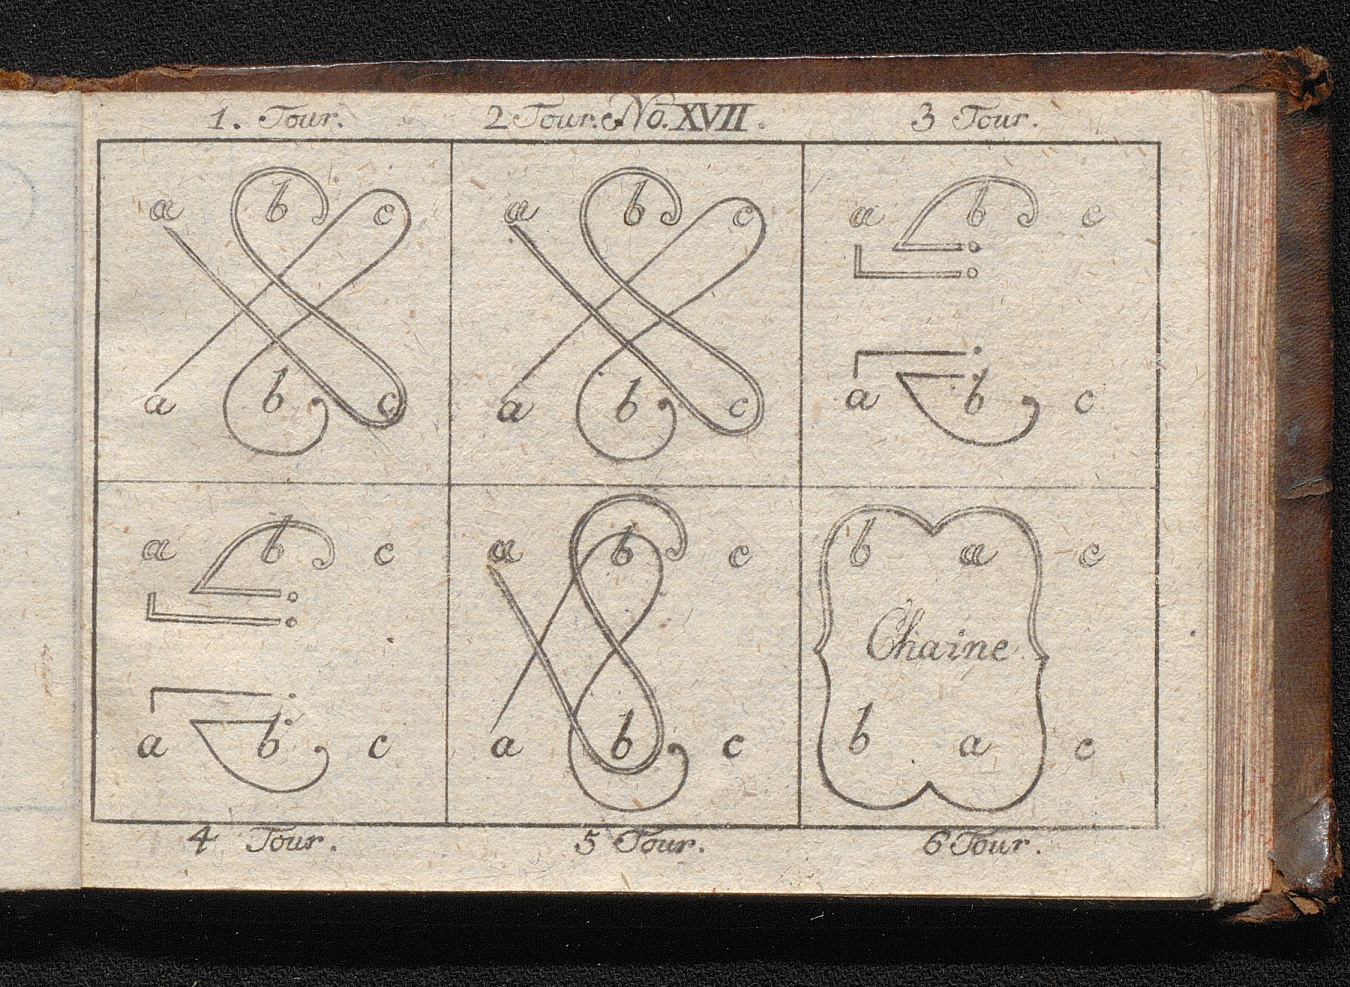 1. Tour. 2 Tour. No. XVII. 3 Tour.
a b c a b c a b c
a b c a b c a b c
a b c a b c b a c
Chaine
a b c a b c b a c
4 Tour. 5 Tour. 6 Tour.